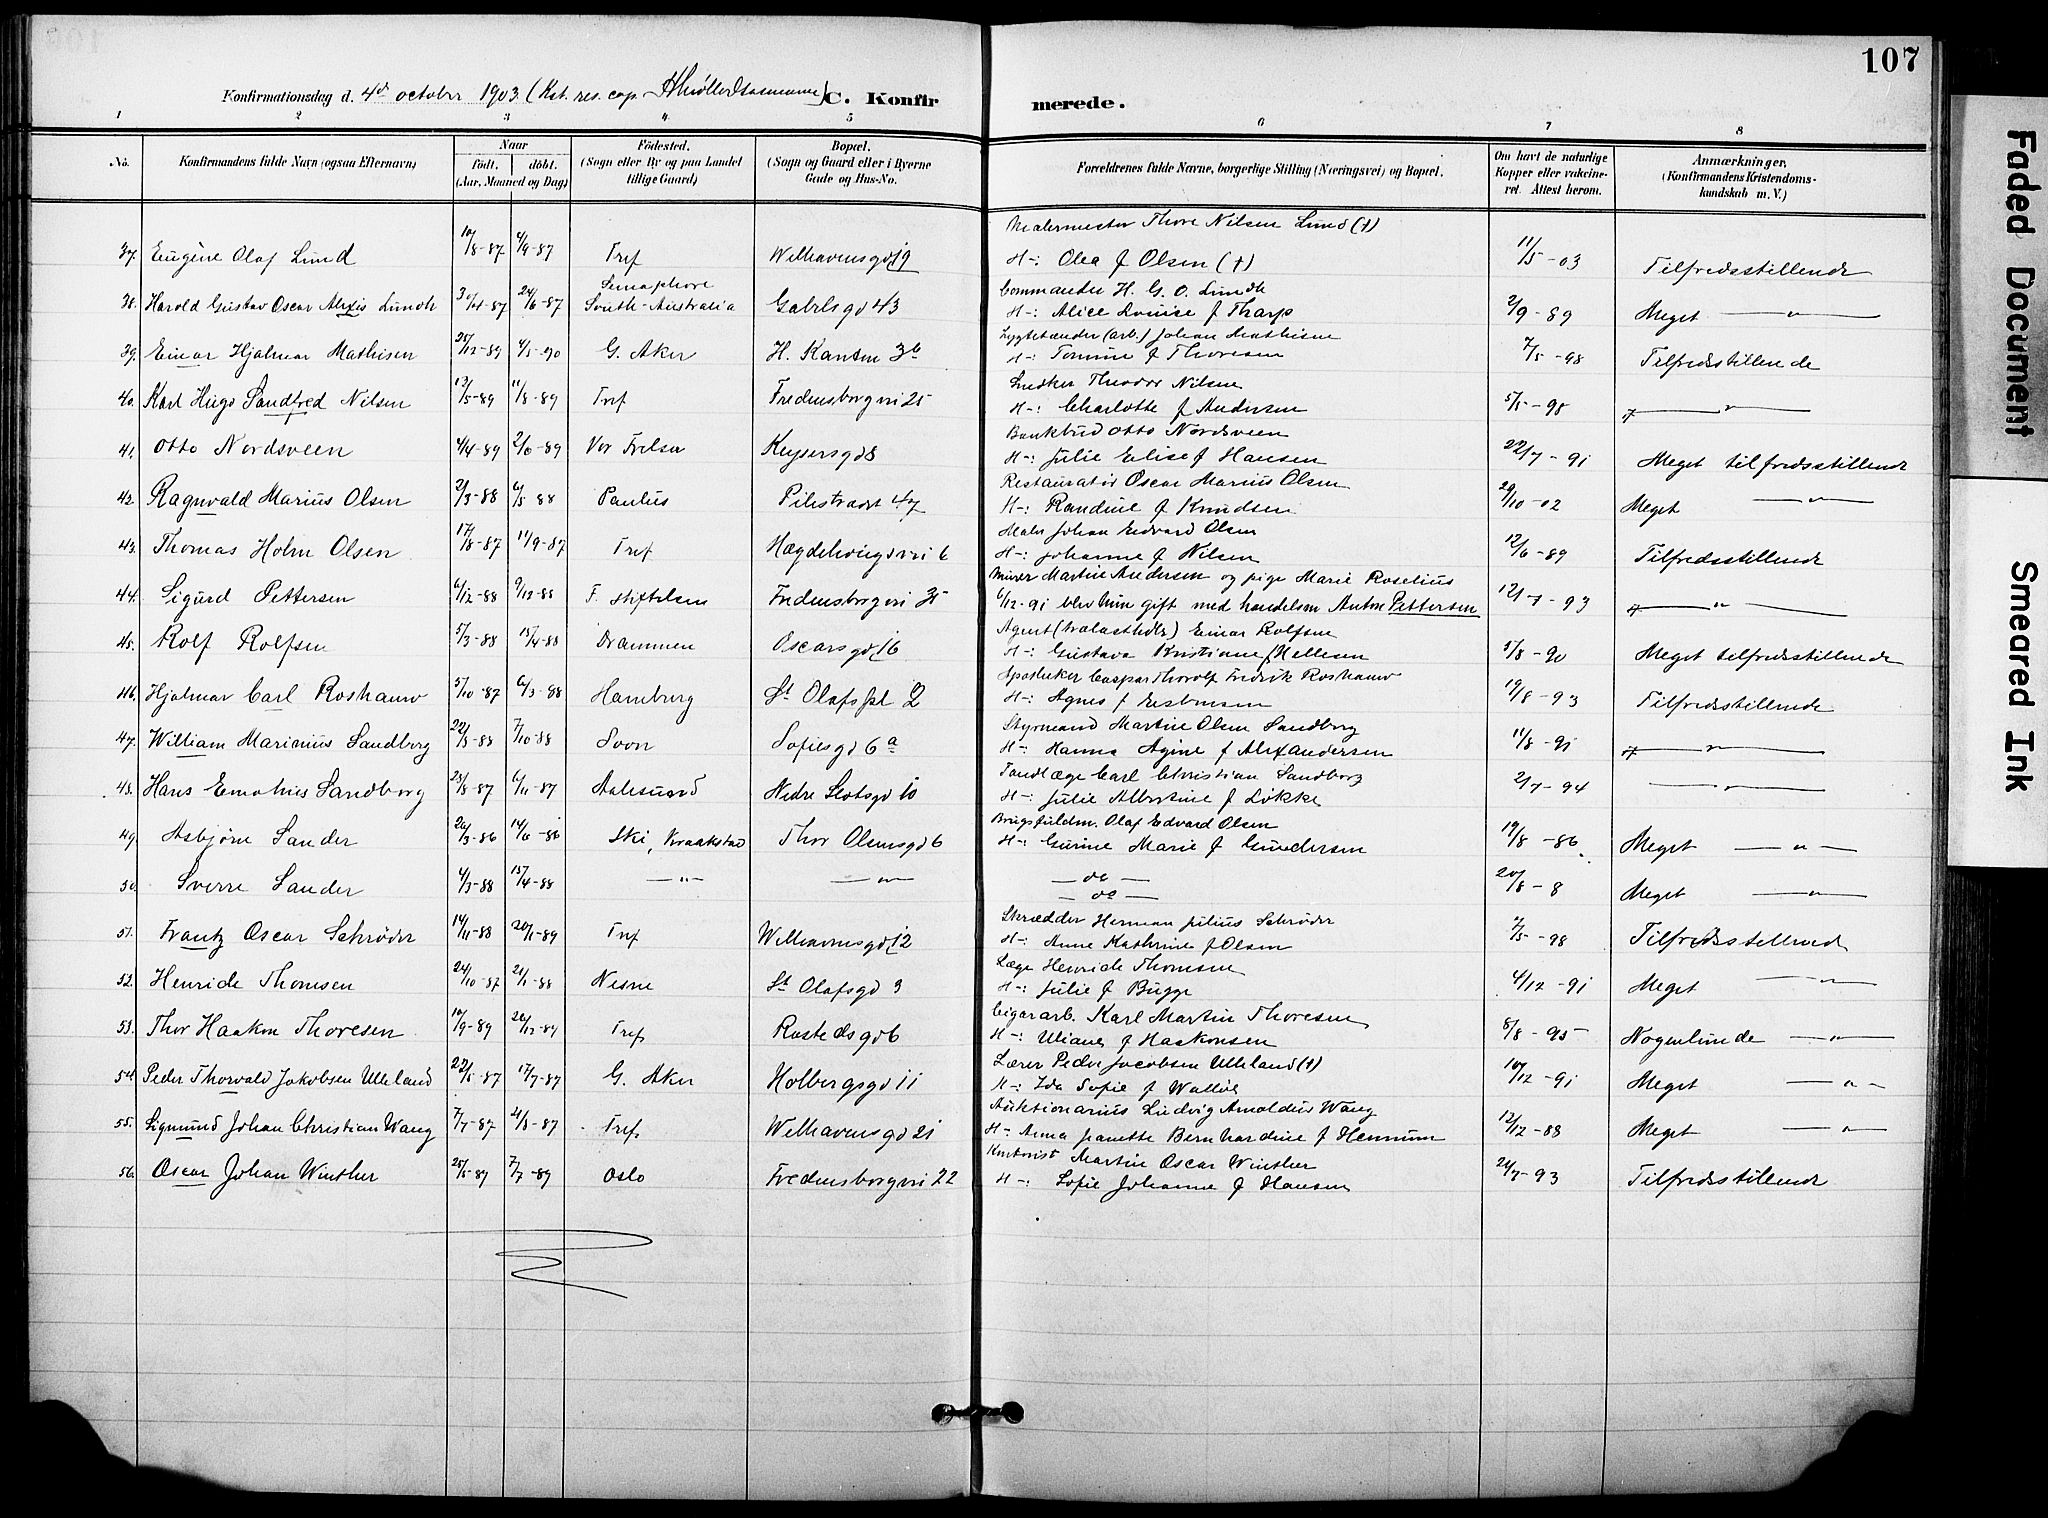 107
Konfirmationsdag d. 4de october 1903 (Kst. res. cap. C. Konfirmerede.
1 2 3 4 5 6 7 8
No. Konfirmandens fulde Navn (ogsaa Efternavn) Naar født. døbt. (Aar, Maaned og Dag) Fødested. (Sogn eller By og paa Landet tillige Gaard) Bopæl. (Sogn og Gaard eller i Byerne Gade og Hus-No. Forældrenes fulde Navne, borgerlige Stilling (Næringsvei) og Bopæl. Om havt de naturlige Kopper eller vakcineret. Attest herom. Anmærkninger. (Konfirmandens Kristendomskundskab m. V.)
Malermester Thore Nilsen Lund (†)
37. Eugène Olaf Lund 10/8-87 4/9-87 Tref Welhavensgd 19 H-: Olea f Olsen (†) 11/5-03 Tilfredsstillende
Semaphore Commander H. G. O. Lundh
38. Harold Gustav Oscar Alexis Lundh 30/4-87 24/6-87 South-Australia Gabelsgd 43 H-: Alice Louise f Tharp 2/9-89 Meget —"—
Lygtetænder (arb.) Johan Mathisen
39. Einar Hjalmar Mathisen 28/12-89 4/5-90 G. Aker H. Kanten 3b H-: Tomine f Thoresen 7/5-98 Tilfredsstillende
Snedker Theodor Nilsen
40. Karl Hugo Sandfred Nilsen 13/5-89 11/8-89 Tref Fredensborgvei 25 H-: Charlotte f Andersen 5/5-98 —"—
Bankbud Otto Nordsveen
41. Otto Nordsveen 4/4-89 2/6-89 Vor Frelser Keysersgd 8 H-: Julie Elise f Hansen 22/7-91 Meget tilfredsstillende
Restauratør Oscar Marius Olsen
42. Ragnvald Marius Olsen 2/3-88 6/5 88 Paulus Pilestrædet 47 H-: Randine f Knudsen 29/10-02 Meget —"—
Maler Johan Edvard Olsen
43. Thomas Holm Olsen 17/8-87 11/9-87 Tref Hægdehaugsvei 6 H-: Johanne f Nilsen 12/6-89 Tilfredsstillende
Murer Martin Andersen og pige Marie Roselius
44. Sigurd Pettersen 6/12-88 9/12-88 F. stiftelsen Fredensborgvei 35 6/12-91 blev hun gift med handelsm Anton Pettersen 12/7-93 —"—
Agent Einar Rolfsen
45. Rolf Rolfsen 5/3-88 15/4-88 Drammen Oscarsgd 16 H-: Gustava Kristiane f Hellesen 5/8-90 Meget tilfredsstillende
Apotheker Caspar Thorolf Fredrik Roshauw
46. Hjalmar Carl Roshauw 5/10-87 6/3-88 Hamburg St Olafspl 2 H-: Agnes f Esbensen 19/8-93 Tilfredsstillende
Styrmand Martin Olsen Sandborg
47. William Marinius Sandborg 22/8-88 7/10-88 Soon Sofiesgd 6a H-: Hanna Agine f Alexandersen 11/8-91 —"—
Tandlæge Carl Christian Sandborg
48. Hans Sandborg 23/8-87 6/11-87 Aalesund Nedre Slotsgd 10 H-: Julie Albertine f Løkke 2/7-94 —"—
Brugsfuldm. Olaf Edvard Olsen
49. Asbjørn Sander 20/3-86 14/6-86 Ski, Kraakstad Thor Olsensgd 6 H-: Gurine Marie f Gundersen 19/8-86 Meget —"—
— do —
50. Sverre Sander 4/3-88 15/4-88 —"— —"— — do — 20/8-8 Meget —"—
Skrædder Herman Julius Schrøder
51. Frantz Oscar Schrøder 14/11-88 20/1-89 Tref Welhavensgd 12 H-: Anne Kathrine f Olsen 7/5-98 Tilfredsstillend
Læge Henrich Thomsen
52. Henrich Thomsen 24/10-87 21/1-88 Nesne St Olafsgd 3 H-: Julie f Bugge 4/12-91 Meget —"—
Cigararb. Karl Martin Thoresen
53. Thor Haakon Thoresen 10/9-89 26/12-89 Tref Rostedsgd 6 H-: Uliane f Haakonsen 8/8-95 Nogenlunde —"—
Lærer Peder Jacobsen Ulleland (†)
54 Peder Thorvald Jakobsen Ulleland 22/5-87 17/7-87 G. Aker Holbergsgd 11 H-: Ida Sofie f Walløe 10/12-91 Meget —"—
Auktionarius Ludvig Arnoldus Wang
55. Sigmund Johan Christian Wang 7/7-87 21/8-87 Tref. Welhavensgd 21 H-: Anna Jeanette Bernhardine f Hennum 12/12-88 Meget —"—
Martin Oscar Winther
56. Oscar Johan Winther 25/5-89 7/7-89 Oslo Fredensborgvei 22 H-: Sofie Johanne f Hansen 24/7-93 Tilfredsstillende
Faded Document
Smeared Ink